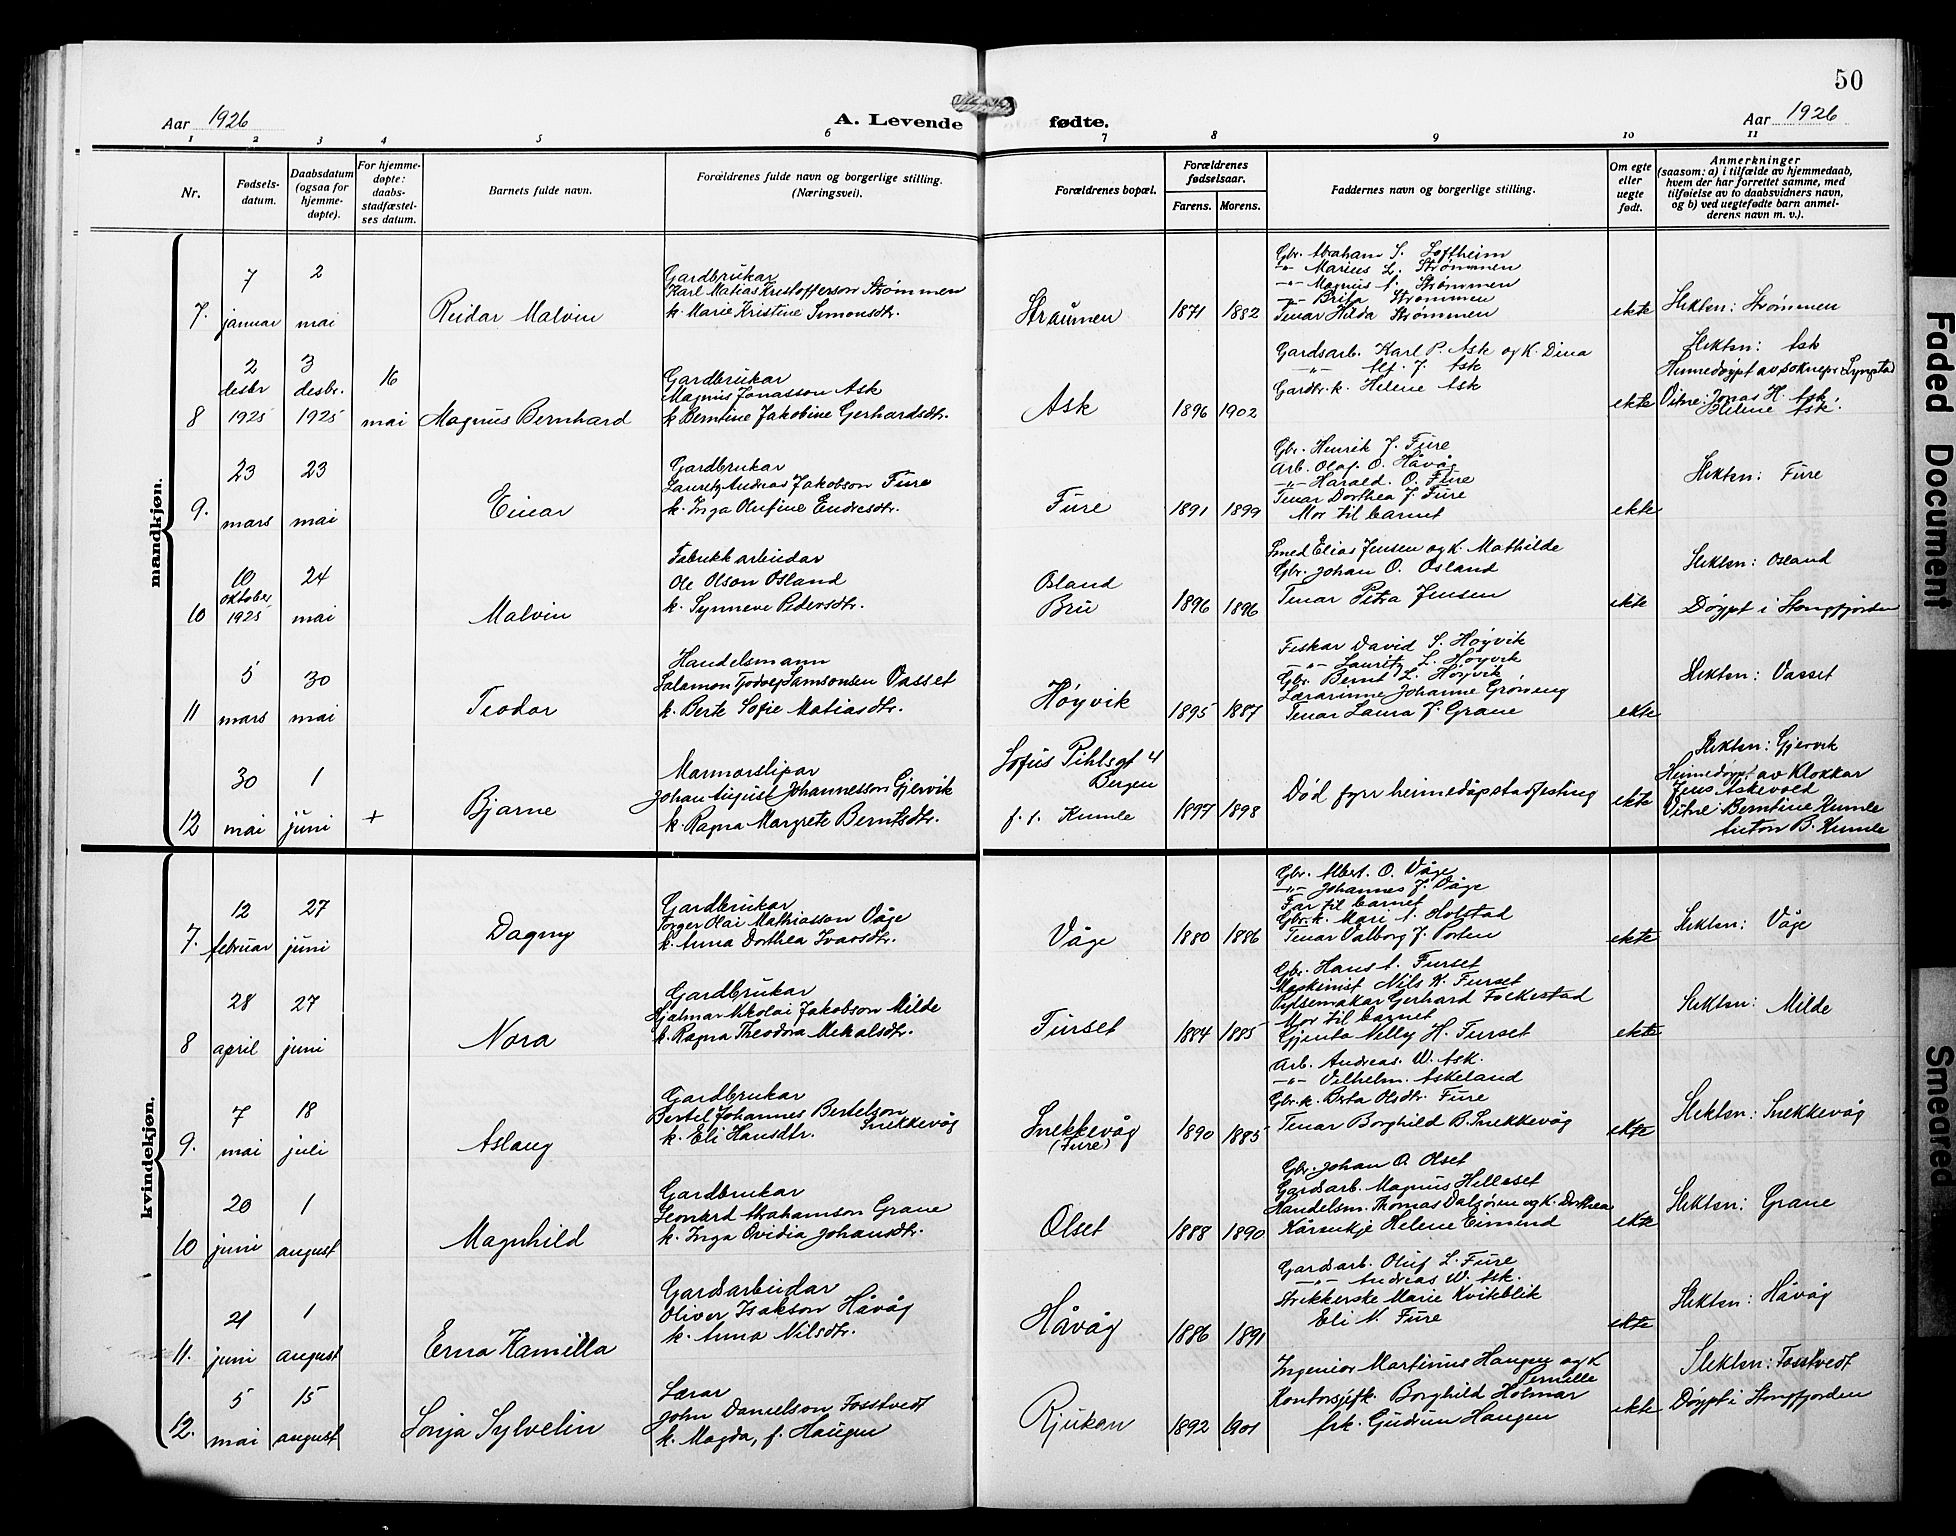 50
Aar 1926
A. Levende fødte.
Aar 1926
1 2 3 4 5 6 7 8 9 10 11
Nr.
Fødsels-
datum.
Daabsdatum
(ogsaa for
hjemme-
døpte).
For hjemme-
døpte:
daabs-
stadfæstel-
ses datum.
Barnets fulde navn.
Forældrenes fulde navn og borgerlige stilling.
(Næringsvei).
Forældrenes bopæl.
Forældrenes
fødselsaar.
Farens. Morens.
Faddernes navn og borgerlige stilling.
Om egte
eller
uegte
født.
Anmerkninger
(saasom: a) i tilfælde av hjemmedaab,
hvem der har forrettet samme, med
tilføielse av to daabsvidners navn,
og b) ved uegtefødte barn anmel-
derens navn m. v.).
mandkjøn.
7.
7
januar
2
mai
Reidar Malvin
Gardbrukar
Karl Matias Kristofferson Strømmen
k. Marie Kristine Simonsdtr.
Straumen
1871 1882
Gbr. Abraham S. Loftheim
-"- Marius L. Strømmen
-"- Magnus A. Strømmen
-"- Brita Strømmen
Tenar Hilda Strømmen
ekte
Slektsn: Strømmen
8
2
desbr
1925
3
desbr.
1925
16
mai
Magnus Bernhard
Gardbrukar
Magnus Jonasson Ask
k. Berntine Jakobine Gerhardsdtr.
Ask
1896 1902
Gardsarb. Karl P. Ask og k. Dina
-"- Alf. J. Ask
Gardbr. k. Helene Ask
ekte
Slektsn: Ask
Heimedøypt av soknepr. Lyngstad
Vitne: Jonas H. Ask
Helene Ask.
9.
23
mars
23
mai
Einar
Gardbrukar
Lauritz Andreas Jakobson Fure
k. Inga Olufine Endresdtr.
Fure
1891 1899
Gbr. Henrik J. Fure
Arb. Olaf O. Håvåg
-"- Harald. O. Fure
Tenar Dorthea J. Fure
Mor til barnet
ekte
Slektsn: Fure
10
10
oktober
1925
24
mai
Malvin
Fabrikkarbeidar
Ole Olson Osland
k. Synneve Pedersdtr.
Osland
Bru
1896 1896
Smed Elias Jensen og k. Mathilde
Gbr. Johan O. Osland
Tenar Petra Jensen
ekte
Slektsn: Osland
Døypt i Stongfjorden
11
5
mars
30
mai
Teodor
Handelsmann
Salamon Tjodvej Samsonsen Vasset
k. Berte Sofie Matiasdtr.
Høyvik
1895 1887
Fiskar David S. Høyvik
-"- Lauritz L. Høyvik
Gbr. Bernt L. Høyvik
Lærarinne Johanne Grøneng
Tenar Laura J. Grane
ekte
Slektsn: Vasset
12
30
mai
1
juni
+
Bjarne
Marmorslipar
Johan August Johannesson Gjervik
k. Ragna Margrete Berntsdtr.
Sofus Pihlsgt 4
Bergen
f. t. Kumle
1897 1898
Død fyrr heimedåpstadfesting
ekte
Slektsn: Gjervik
Heimedøypt av Klokkar
Jens Askevold
Vitne: Berntine Kumle
Anton B. Kumle
kvindekjøn.
7.
12
februar
27
juni
Dagny
Gardbrukar
Torger Olai Mathiasson Våge
k. Anna Dorthea Ivarsdtr.
Våge
1880 1886
Gbr. Albert. O. Våge
-"- Johannes J. Våge
Far til barnet
Gbr. k. Mari A. Holstad
Tenar Valborg J. Porten
ekte
Slektsn: Våge
8
28
april
27
juni
Nora
Gardbrukar
Hjalmar Nikolai Jakobson Milde
k. Ragna Theodora Mikalsdtr.
Furset
1884 1885
Gbr. Hans A. Furset
Maskinist Nils K. Furset
Pydsemakar Gerhard Folkestad
Mor til barnet
Gjenta Nelly H. Furset
ekte
Slektsn: Milde
9.
7
mai
18
juli
Aslaug
Gardbrukar
Bertel Johannes Bertelson
Snekkevåg
k. Eli Hansdtr.
Snekkevåg
(Fure)
1890 1885
Arb. Andreas. W. Ask.
-"- Vilhelm. Askeland
Gbr. k. Berta Olsdtr. Fure
Tenar Borghild B. Snekkevåg
ekte
Slektsn: Snekkevåg
10
20
juni
1
august
Magnhild
Gardbrukar
Leonard Abrahamson Grane
k. Inga Ovidia Johansdtr.
Olset
1888 1890
Gbr. Johan O. Olset
Gardsarb. Magnus Hilleset
Handelsm. Thomas Dalsøren og k. Dorthea
Kårenkje Helene Eimind
ekte
Slektsn: Grane
11.
21
juni
1
august
Erna Kamilla
Gardsarbeidar
Oliver Isakson Håvåg
k. Anna Nilsdtr.
Håvåg
1886 1891
Gardsarb. Oluf L. Fure
-"- Andreas W. Ask.
Strikkerske Marie Kviteblik
Eli N. Fure
ekte
Slektsn: Håvåg
12.
5
mai
15
august
Sonja Sylvelin
Lærar
John Danielson Fosstvedt
k. Magda, f. Haugen
Rjukan
1892 1901
Ingeniør Martinus Haugen og k
Pernille
Kontorsjefk. Borghild Holmar
frk. Gudrun Haugen
ekte
Slektsn: Fosstvedt
Døypt i Stongfjorden
Faded Document
Smeared